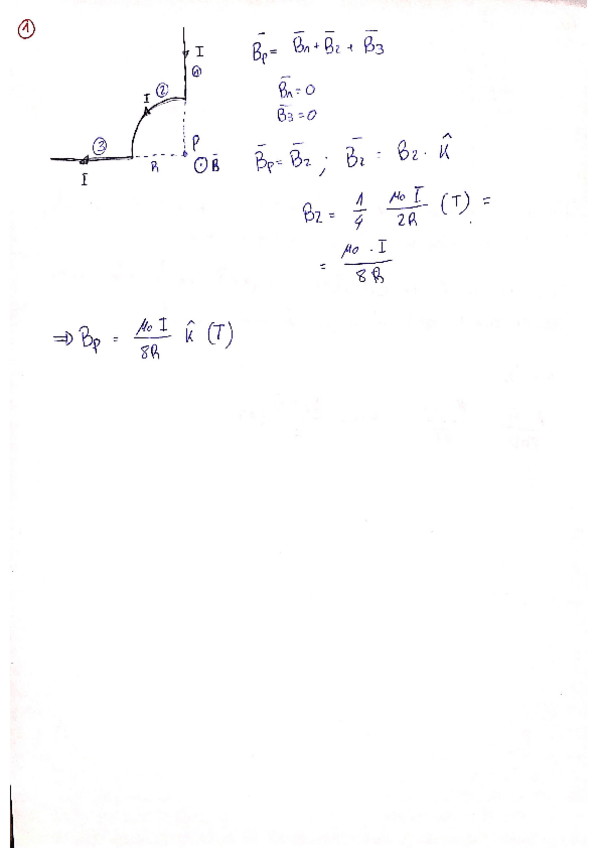 ①
I
①
②
I
③
I
R
P
⊙ B̄
B̄p = B̄1 + B̄2 + B̄3
B̄1 = 0
B̄3 = 0
B̄p = B̄2 ; B̄2 = B2 · k̂
B2 = 1/4 μ0 I/2R (T) =
= μ0 · I/8R
⇒ Bp = μ0 I/8R k̂ (T)